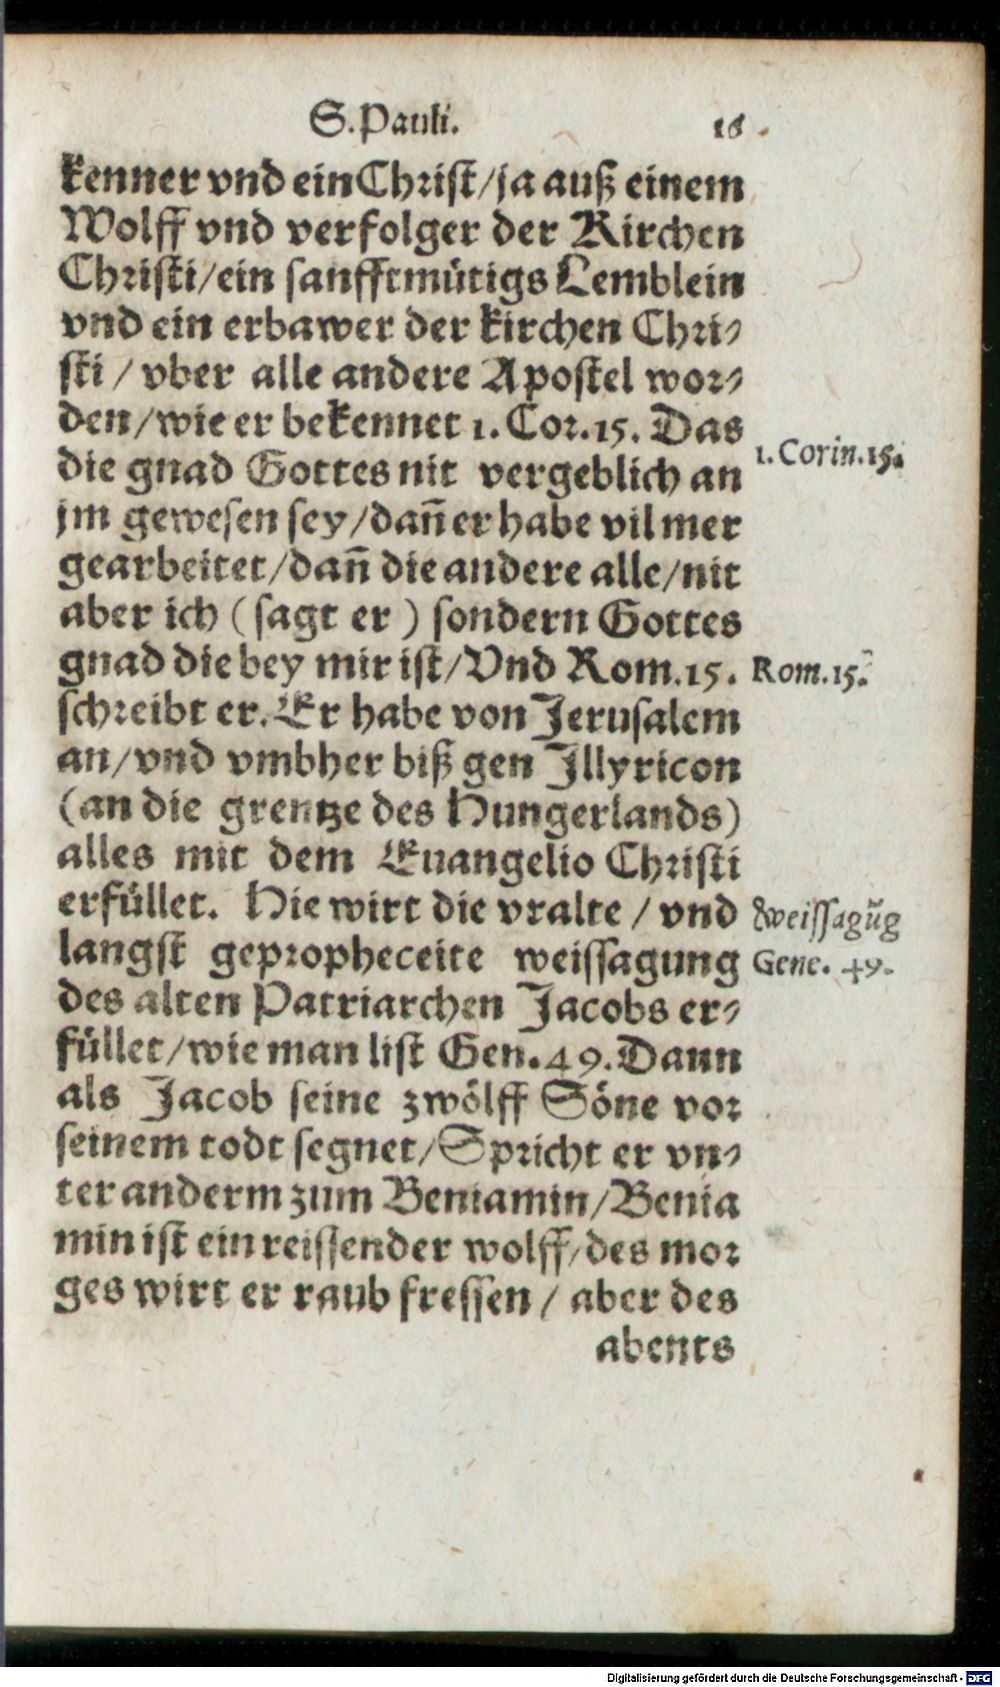 S. Pauli. 16
kenner vnd ein Christ/ja auß einem
Wolff vnd verfolger der Kirchen
Christi/ein sanfftmütigs Lemblein
vnd ein erbawer der kirchen Chri-
sti / vber alle andere Apostel wor-
den/wie er bekennet 1. Cor. 15. Das
1. Corin. 15.
die gnad Gottes nit vergeblich an
jm gewesen sey/dañ er habe vil mer
gearbeitet/dañ die andere alle/nit
aber ich ( sagt er ) sondern Gottes
gnad die bey mir ist/Vnd Rom. 15.
Rom. 15.
schreibt er. Er habe von Jerusalem
an/vnd vmbher biß gen Illyricon
(an die grentze des Hungerlands)
alles mit dem Euangelio Christi
erfüllet. Hie wirt die vralte / vnd
Weissagũg
langst gepropheceite weissagung
Gene. 49.
des alten Patriarchen Jacobs er-
füllet/wie man list Gen. 49. Dann
als Jacob seine zwölff Söne vor
seinem todt segnet/Spricht er vn-
ter anderm zum Beniamin/Benia
min ist ein reissender wolff/des mor
ges wirt er raub fressen / aber des
abents
Digitalisierung gefördert durch die Deutsche Forschungsgemeinschaft - DFG